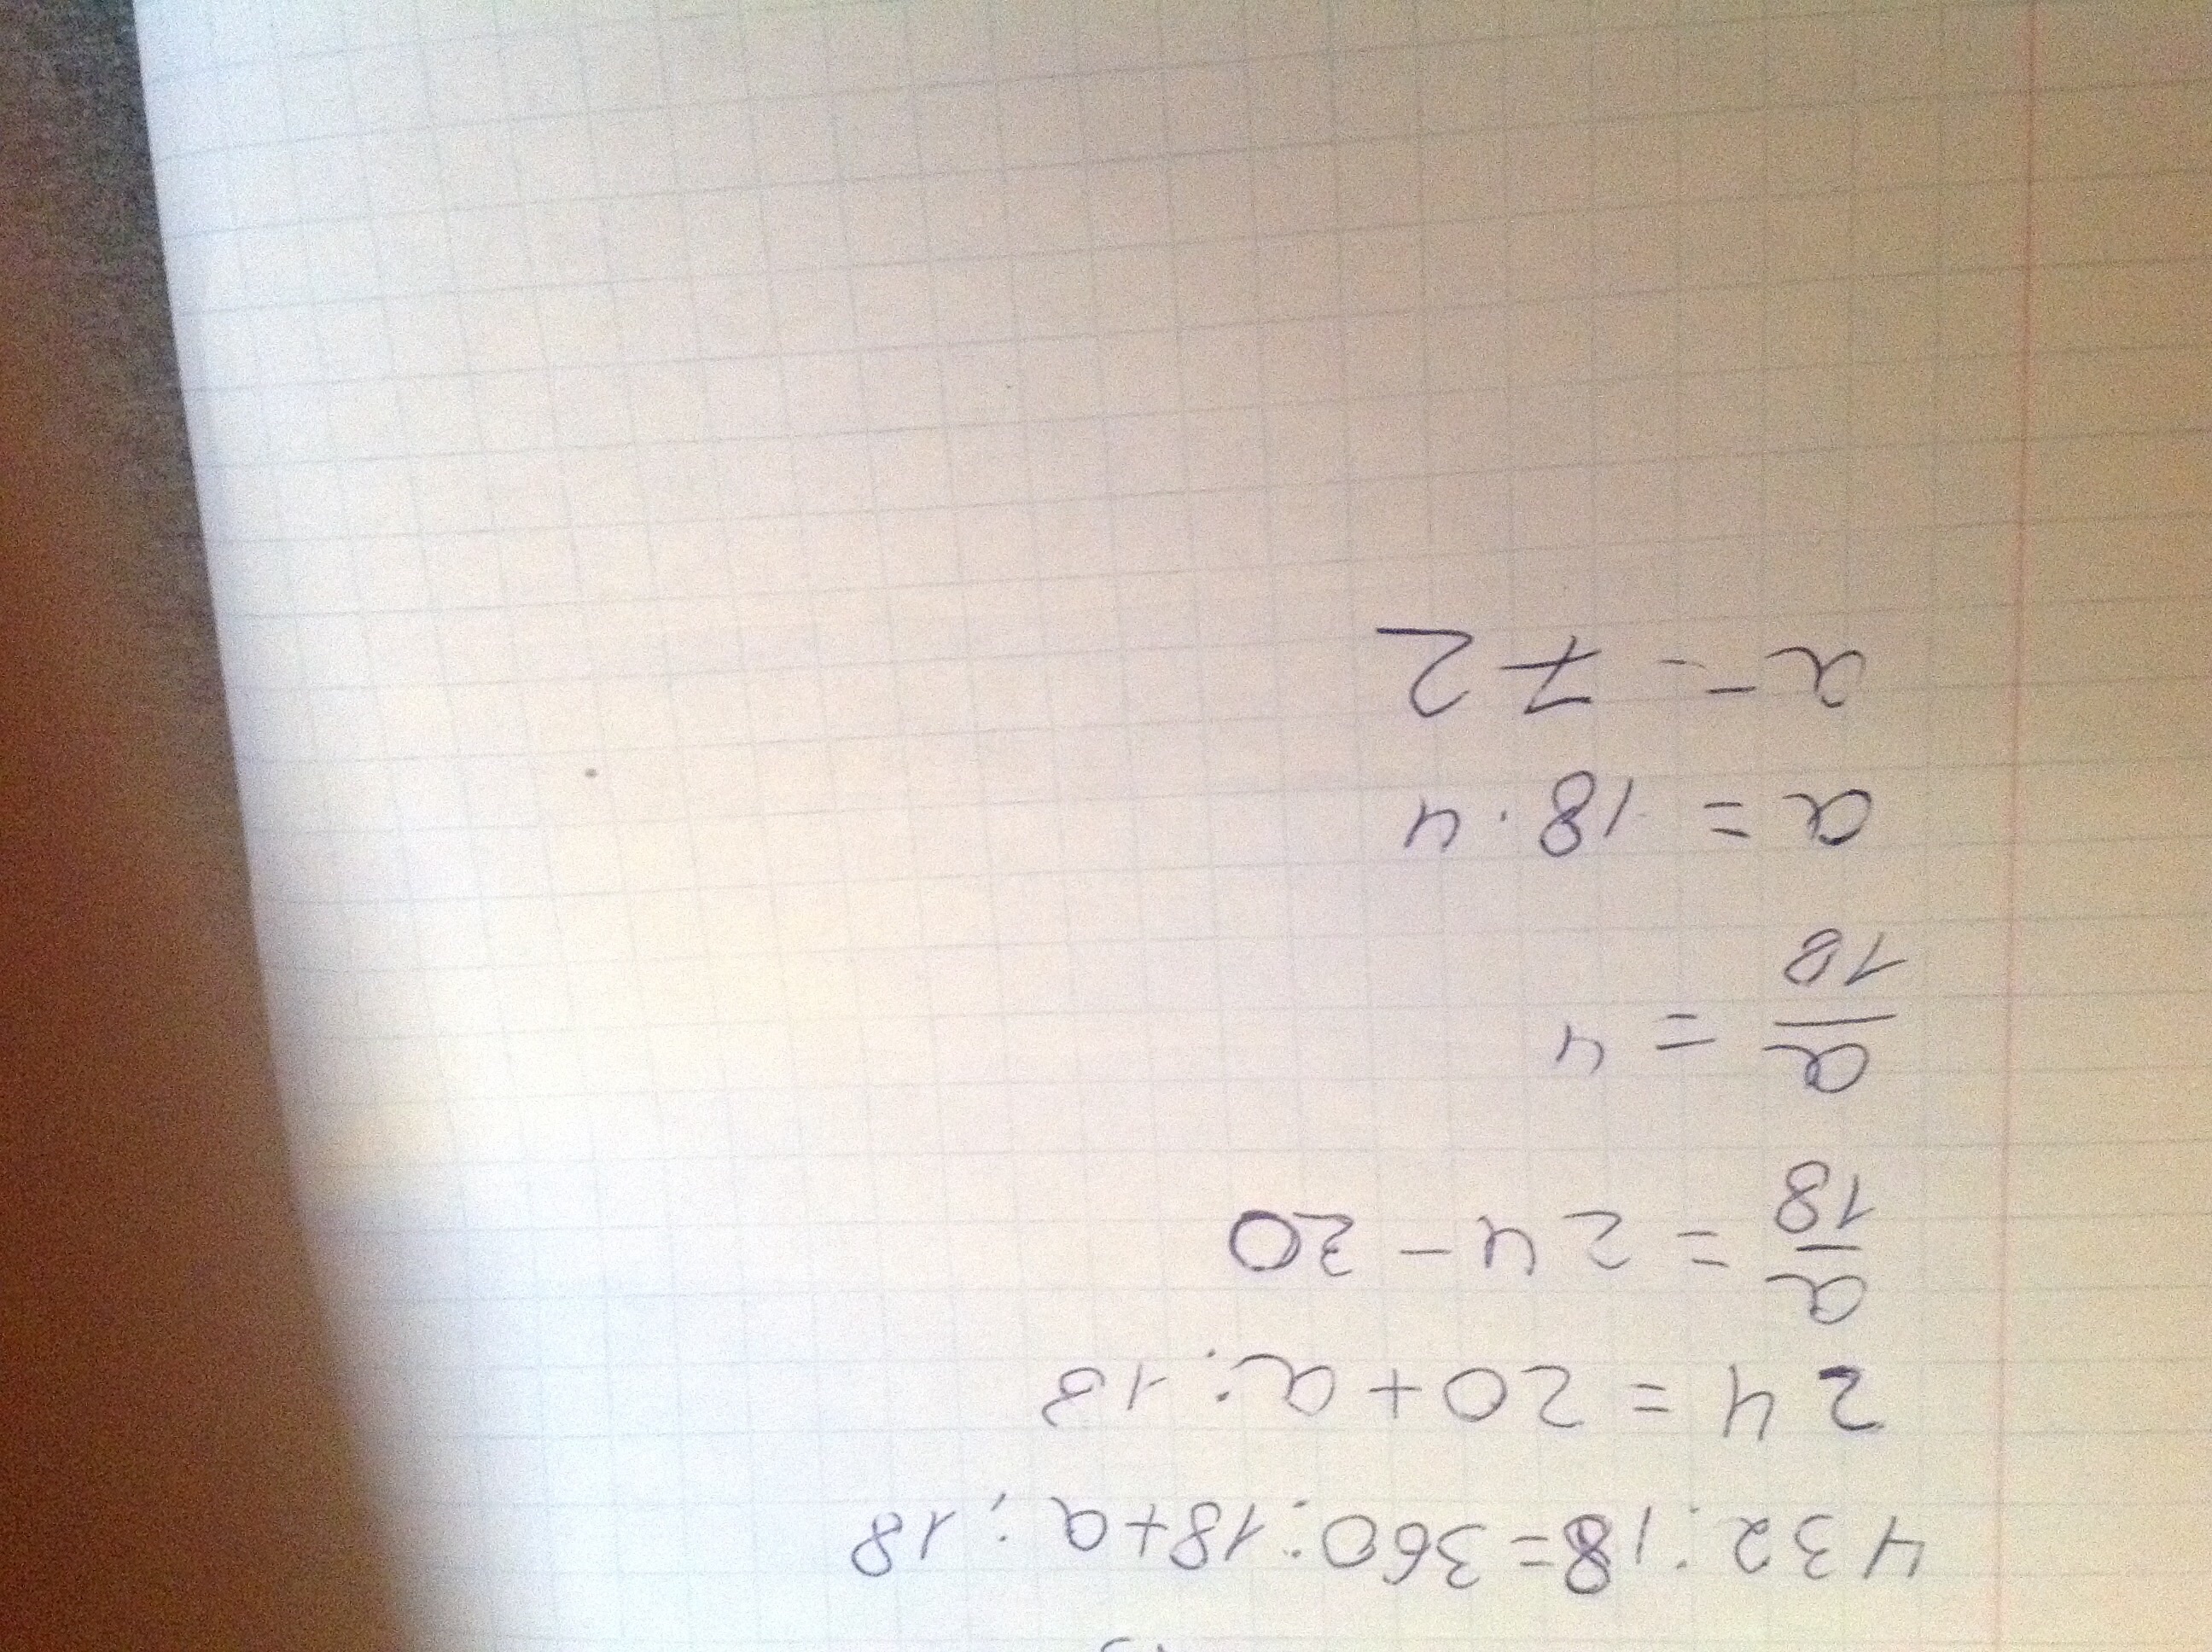 432:18=360:18+a:18
24=20+a:18
a/18=24-20
a/18=4
a=18·4
a=72